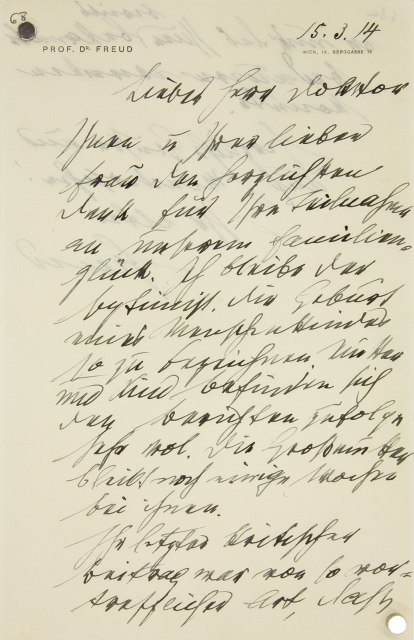 68
15.3.14
PROF. DR. FREUD
WIEN, IX. BERGGASSE 19
Lieber Herr Doktor
Ihnen u Ihrer lieben
Frau den herzlichsten
Dank für Ihre Teilnahme
an unserem Familien-
glück. Ich bleibe der
die Geburt
eines Menschenkindes
so zu bezeichnen Mutter
und Kind befinden sich
den Berichten zufolge
sehr wol. Die Großmutter
bleibt noch einige Wochen
bei ihnen.
Ihr letzter kritischer
Beitrag war von so vor-
trefflicher Art, daß